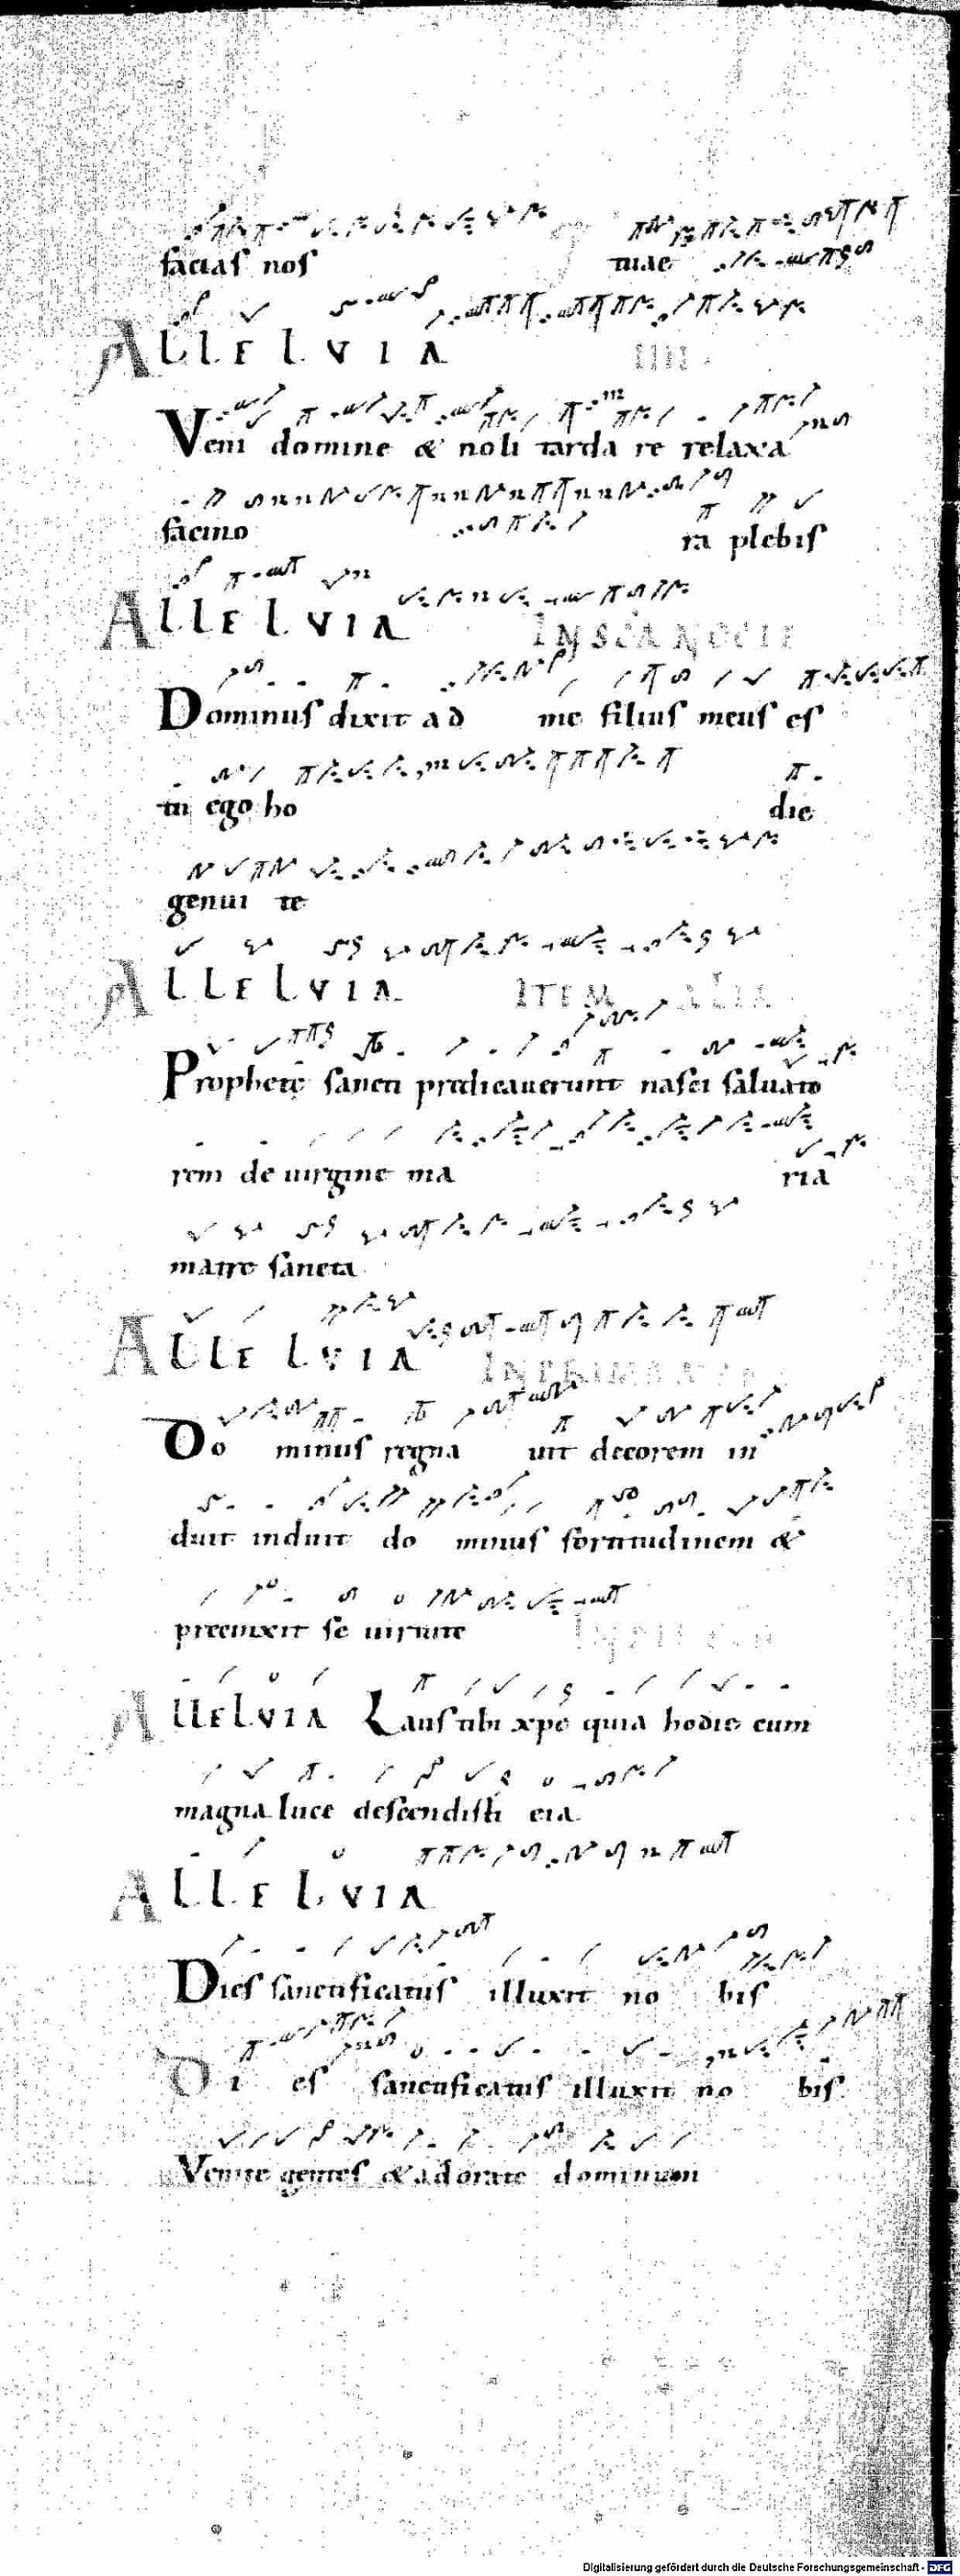 facias nos tuae
ALLELVIA IIII
Veni domine & noli tarda re relaxa
facino ra plebis
ALLELVIA IN SCA NOCTE
Dominus dixit ad me filius meus es
tu ego ho die
genui te
ALLELVIA ITEM ALIA
Prophete sancti predicauerunt nasci saluato
rem de uirgine ma ria
matre sancta
ALLELVIA IN PRIMA
Do minus regna uit decorem in
duit induit do minus fortitudinem &
precinxit se uirtute
ALLELVIA Laus tibi xpe quia hodie cum
magna luce descendisti eia
ALLELVIA
Dies sanctificatus illuxit no bis
Di es sanctificatus illuxit no bis
Venite gentes & adorate dominum
Digitalisierung gefördert durch die Deutsche Forschungsgemeinschaft - DFG